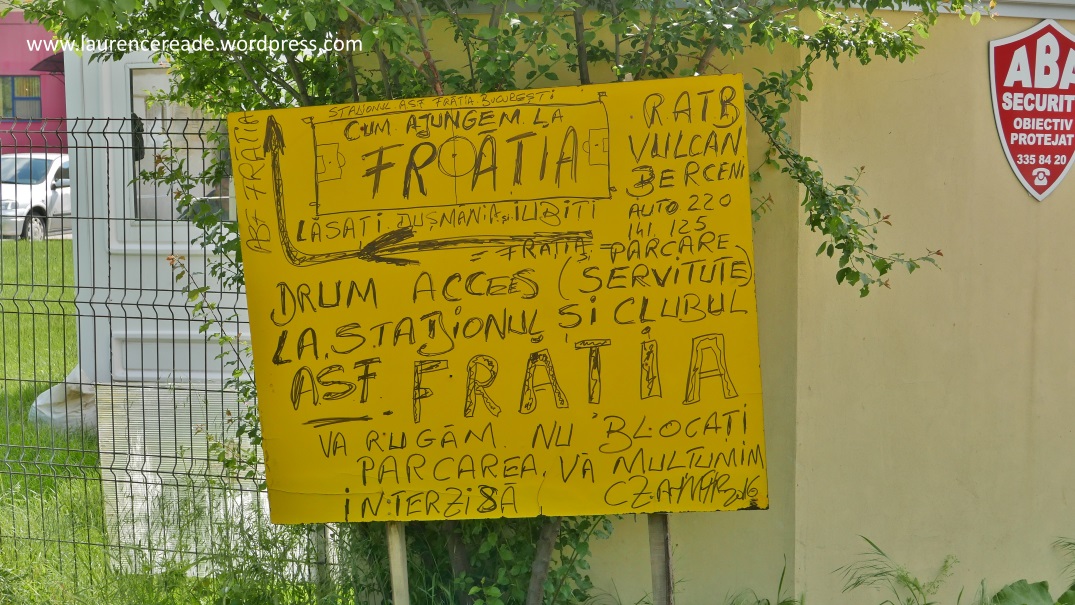 www.laurencereade.wordpress.com
STADIONUL ASF FRĂȚIA BUCUREȘTI
CUM AJUNGEM LA
FRĂȚIA
LĂSAȚI DUȘMANIA ȘI IUBIȚI
ASF FRĂȚIA
RATB
VULCAN
BERCENI
AUTO 220
141. 125
= FRĂȚIA = PARCARE
DRUM ACCES (SERVITUTE)
LA STADIONUL ȘI CLUBUL
ASF. FRĂȚIA
VA RUGĂM NU BLOCAȚI
PARCAREA. VĂ MULȚUMIM
INTERZISĂ
ABA
SECURIT
OBIECTIV
PROTEJAT
335 84 20